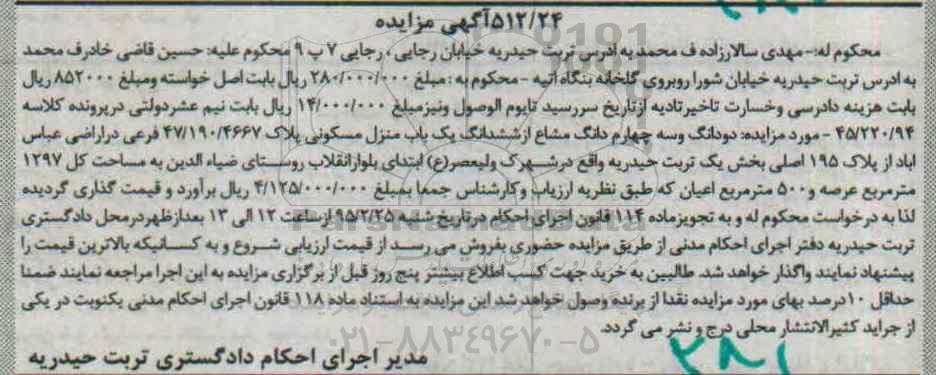 ۵۱۲/۲۴آگهی مزایده
محکوم له:-مهدی سالارزاده ف محمد به آدرس تربت حیدریه خیابان رجایی ، رجایی ۷ پ ۹ محکوم علیه: حسین قاضی خادرف محمد
به ادرس تربت حیدریه خیابان شورا روبروی گلخانه بنگاه آتیه - محکوم به : مبلغ ۲۸۰/۰۰۰/۰۰۰ ریال بابت اصل خواسته ومبلغ ۸۵۲۰۰۰ ریال
بابت هزینه دادرسی وخسارت تاخیرتادیه ازتاریخ سررسید تایوم الوصول ونیزمبلغ ۱۴/۰۰۰/۰۰۰ ریال بابت نیم عشردولتی درپرونده کلاسه
۴۵/۲۲۰/۹۴ - مورد مزایده: دودانگ وسه چهارم دانگ مشاع ازششدانگ یک باب منزل مسکونی پلاک ۴۷/۱۹۰/۴۶۶۷ فرعی دراراضی عباس
اباد از پلاک ۱۹۵ اصلی بخش یک تربت حیدریه واقع درشهرک ولیعصر(ع) ابتدای بلوارانقلاب روستای ضیاء الدین به مساحت کل ۱۲۹۷
مترمربع عرصه و۵۰۰ مترمربع اعیان که طبق نظریه ارزیاب وکارشناس جمعا بمبلغ ۴/۱۲۵/۰۰۰/۰۰۰ ریال برآورد و قیمت گذاری گردیده
لذا به درخواست محکوم له و به تجویزماده ۱۱۴ قانون اجرای احکام درتاریخ شنبه ۹۵/۲/۲۵ ازساعت ۱۲ الی ۱۳ بعدازظهردرمحل دادگستری
تربت حیدریه دفتر اجرای احکام مدنی از طریق مزایده حضوری بفروش می رسد از قیمت ارزیابی شروع و به کسانیکه بالاترین قیمت را
پیشنهاد نمایند واگذار خواهد شد. طالبین به خرید جهت کسب اطلاع بیشتر پنج روز قبل از برگزاری مزایده به این اجرا مراجعه نمایند ضمنا
حداقل ۱۰درصد بهای مورد مزایده نقدا از برنده وصول خواهد شد این مزایده به استناد ماده ۱۱۸ قانون اجرای احکام مدنی یکنوبت در یکی
از جراید کثیرالانتشار محلی درج و نشر می گردد.
۰۲۱-۸۸۳۴۹۶۷۰-۵
مدیر اجرای احکام دادگستری تربت حیدریه